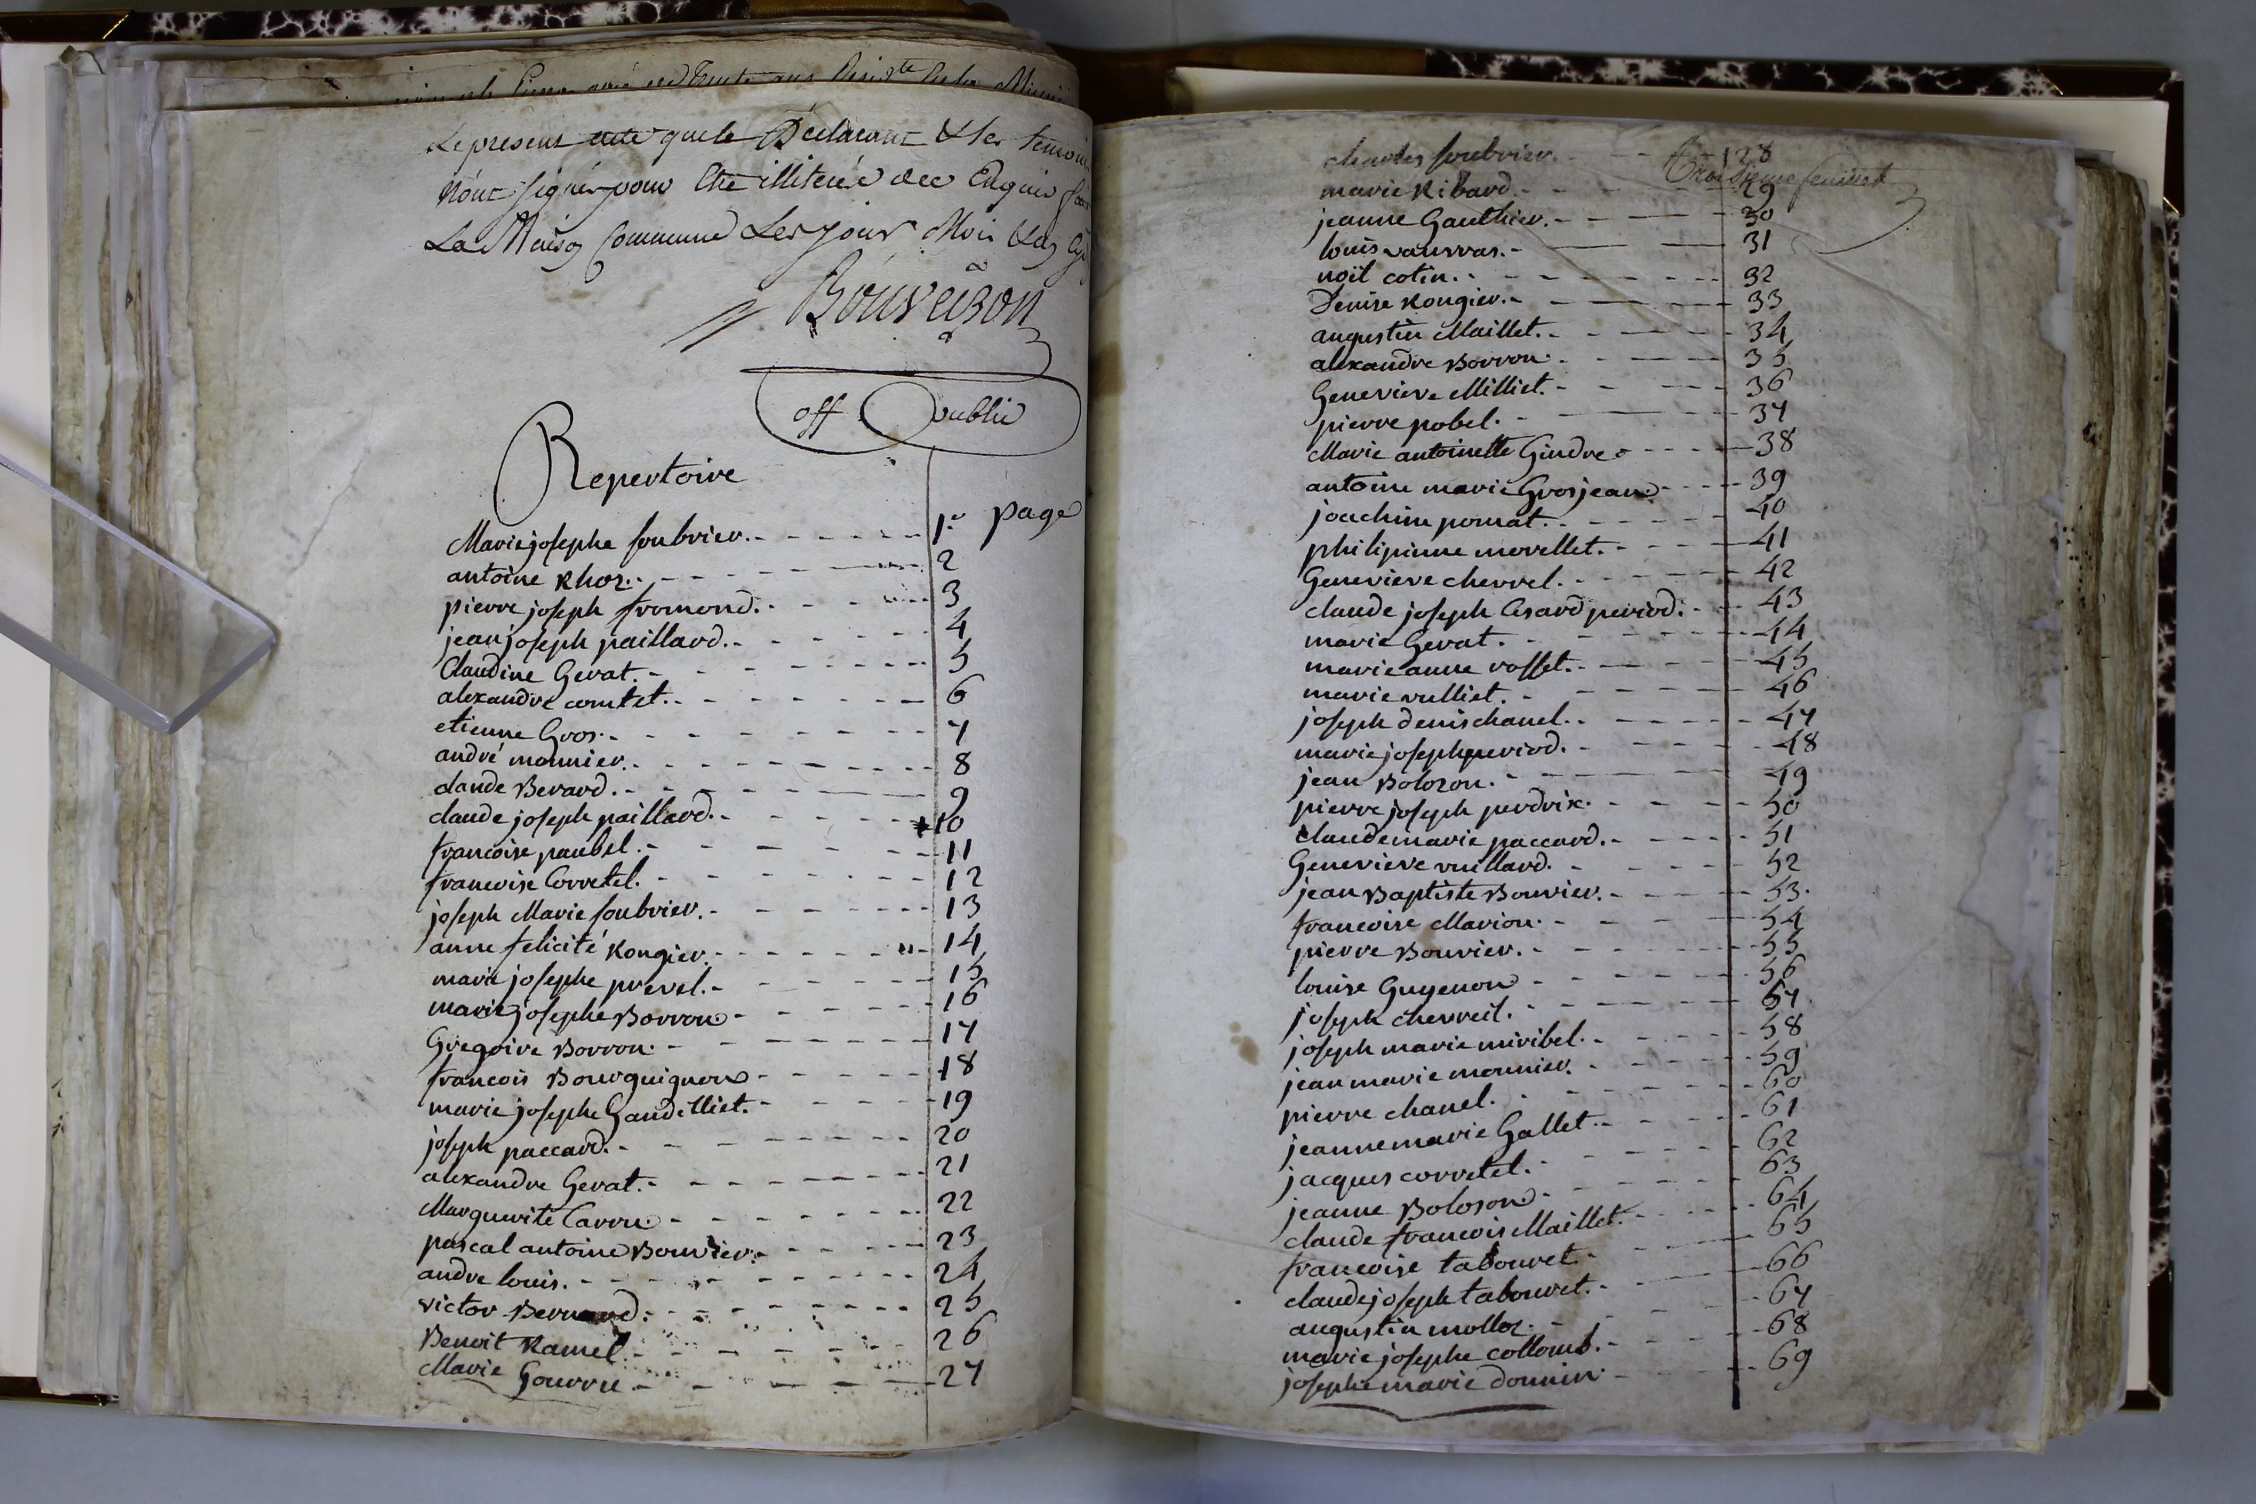 Le present acte que le Declarant & les temoin
Nont signés pour Etre illiteré de ce Enquis
La Maison Commune Les jour Mois & an
Bouveizon
off public
Repertoire
page
Marie josephe soubrier. 1.e
antoine Rhoz. 2
pierre joseph fromond. 3
jean joseph paillard. 4
Claudine Gerat. 5
alexandre comtet. 6
etienne Gros. 7
andré monnier. 8
claude Berard. 9
claude joseph paillard. 10
francoise paubel. 11
francoise Corretel. 12
joseph Marie soubrier. 13
anne felicité Rongier. 14
marie josephe prevel. 15
marie josephe Borron 16
Gregoire Borron. 17
francois Bourguignon 18
marie josephe Gandilliet. 19
joseph paccard. 20
alexandre Gerat. 21
Marguerite Carru. 22
pascal antoine Bouvier. 23
andre louis. 24
victor Bernard. 25
Benoit Ramel. 26
Marie Gourru. 27
troisieme feuillet
charles soubrier. 28
marie Ribard. 29
jeanne Gauthier. 30
louis 31
noël cotin. 32
Denise Rongier. 33
augustin Maillet. 34
alexandre Borron. 35
Genevieve Milliet. 36
pierre pobel. 37
Marie antoinette Gindre 38
antoine marie Grosjean 39
joachim pornat. 40
philipinne morellet. 41
Genevieve chevrel. 42
claude joseph Cesard period. 43
marie Gerat. 44
marie anne rosset. 45
marie vulliet. 46
joseph denis chanel. 47
marie joseph period. 48
jean Bolozon. 49
pierre joseph perdrix. 50
claude marie paccard. 51
Genevieve vuillard. 52
jean Baptiste Bouvier. 53.
francoise Marion. 54
pierre Bouvier. 55
louise Guyenon 56
joseph chevreil. 57
joseph marie miribel. 58
jean marie monnier. 59
pierre chanel. 60
jeanne marie Gallet. 61
jacques corretel. 62
jeanne Boloson 63
claude francois Maillet. 64
francoise tabouret. 65
claude joseph tabouret. 66
augustin molloz. 67
marie josephe collomb. 68
josephe marie donnin 69